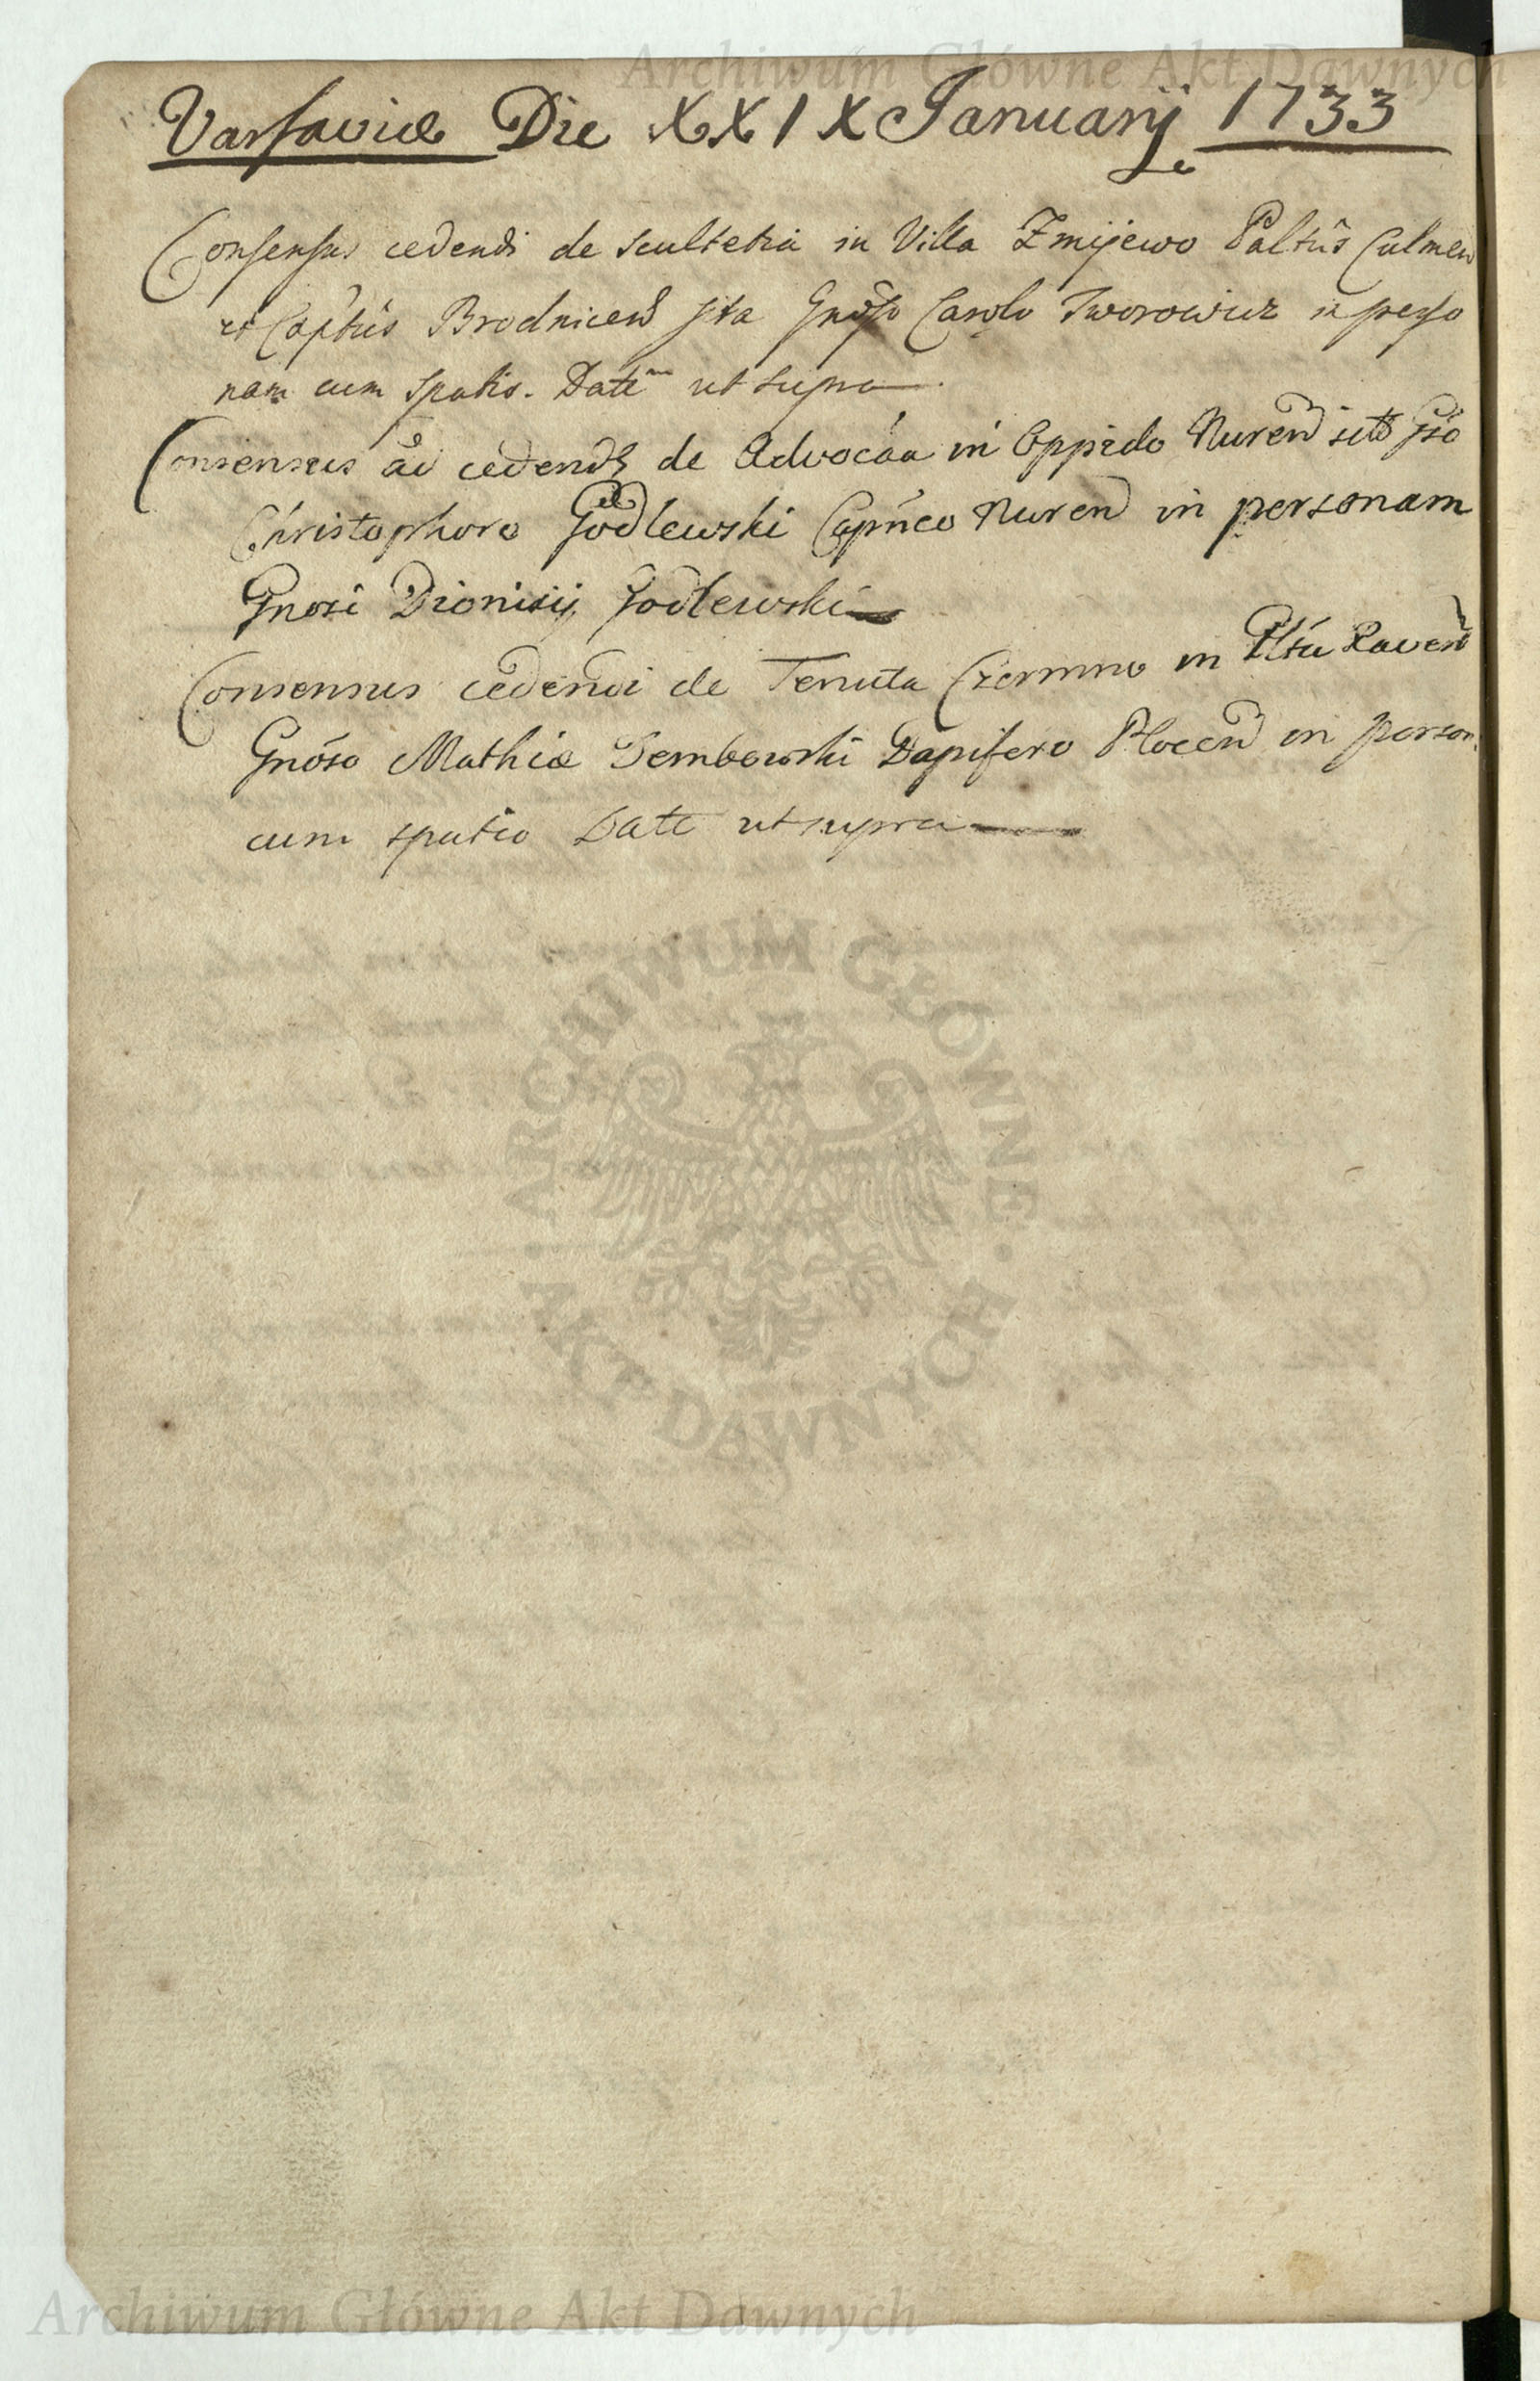 Archiwum Główne Akt Dawnych
Varsaviæ Die XXIX Januarij 1733
Consensus cedendi de Scultetia in Villa Zmijewo Paltus Culmen
et Captus Brodnicen sita Gnoso Carolo Tworowicz in perso
nam cum spatio. Datt ut supra
Consensus ad cedend de Advocaa in Oppido Nuren sito Gso
Christophoro Godlewski Capneo Nuren in personam
Gnosi Dionisij Godlewski
Consensus cedendi de Tenuta Czermno in Pltu Raven
Gnoso Mathiæ Dembowski Dapifero Plocen in person
cum spatio Datt ut supra
ARCHIWUM GŁÓWNE
AKT DAWNYCH
Archiwum Główne Akt Dawnych